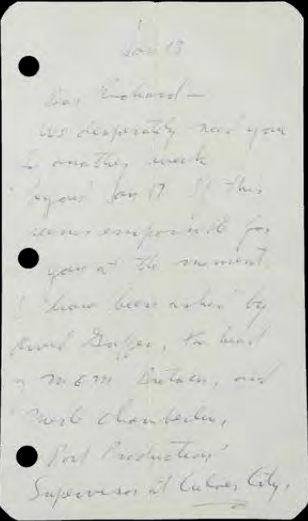 1
Jan 13
Dear Richard —
We desperately need you
for another week
beyond Jan 17. If this
seems impossible for
you at the moment
I have been asked by
the head
of MGM Britain, and
Merle Chamberlin,
Post Production
Supervisor at Culver City,